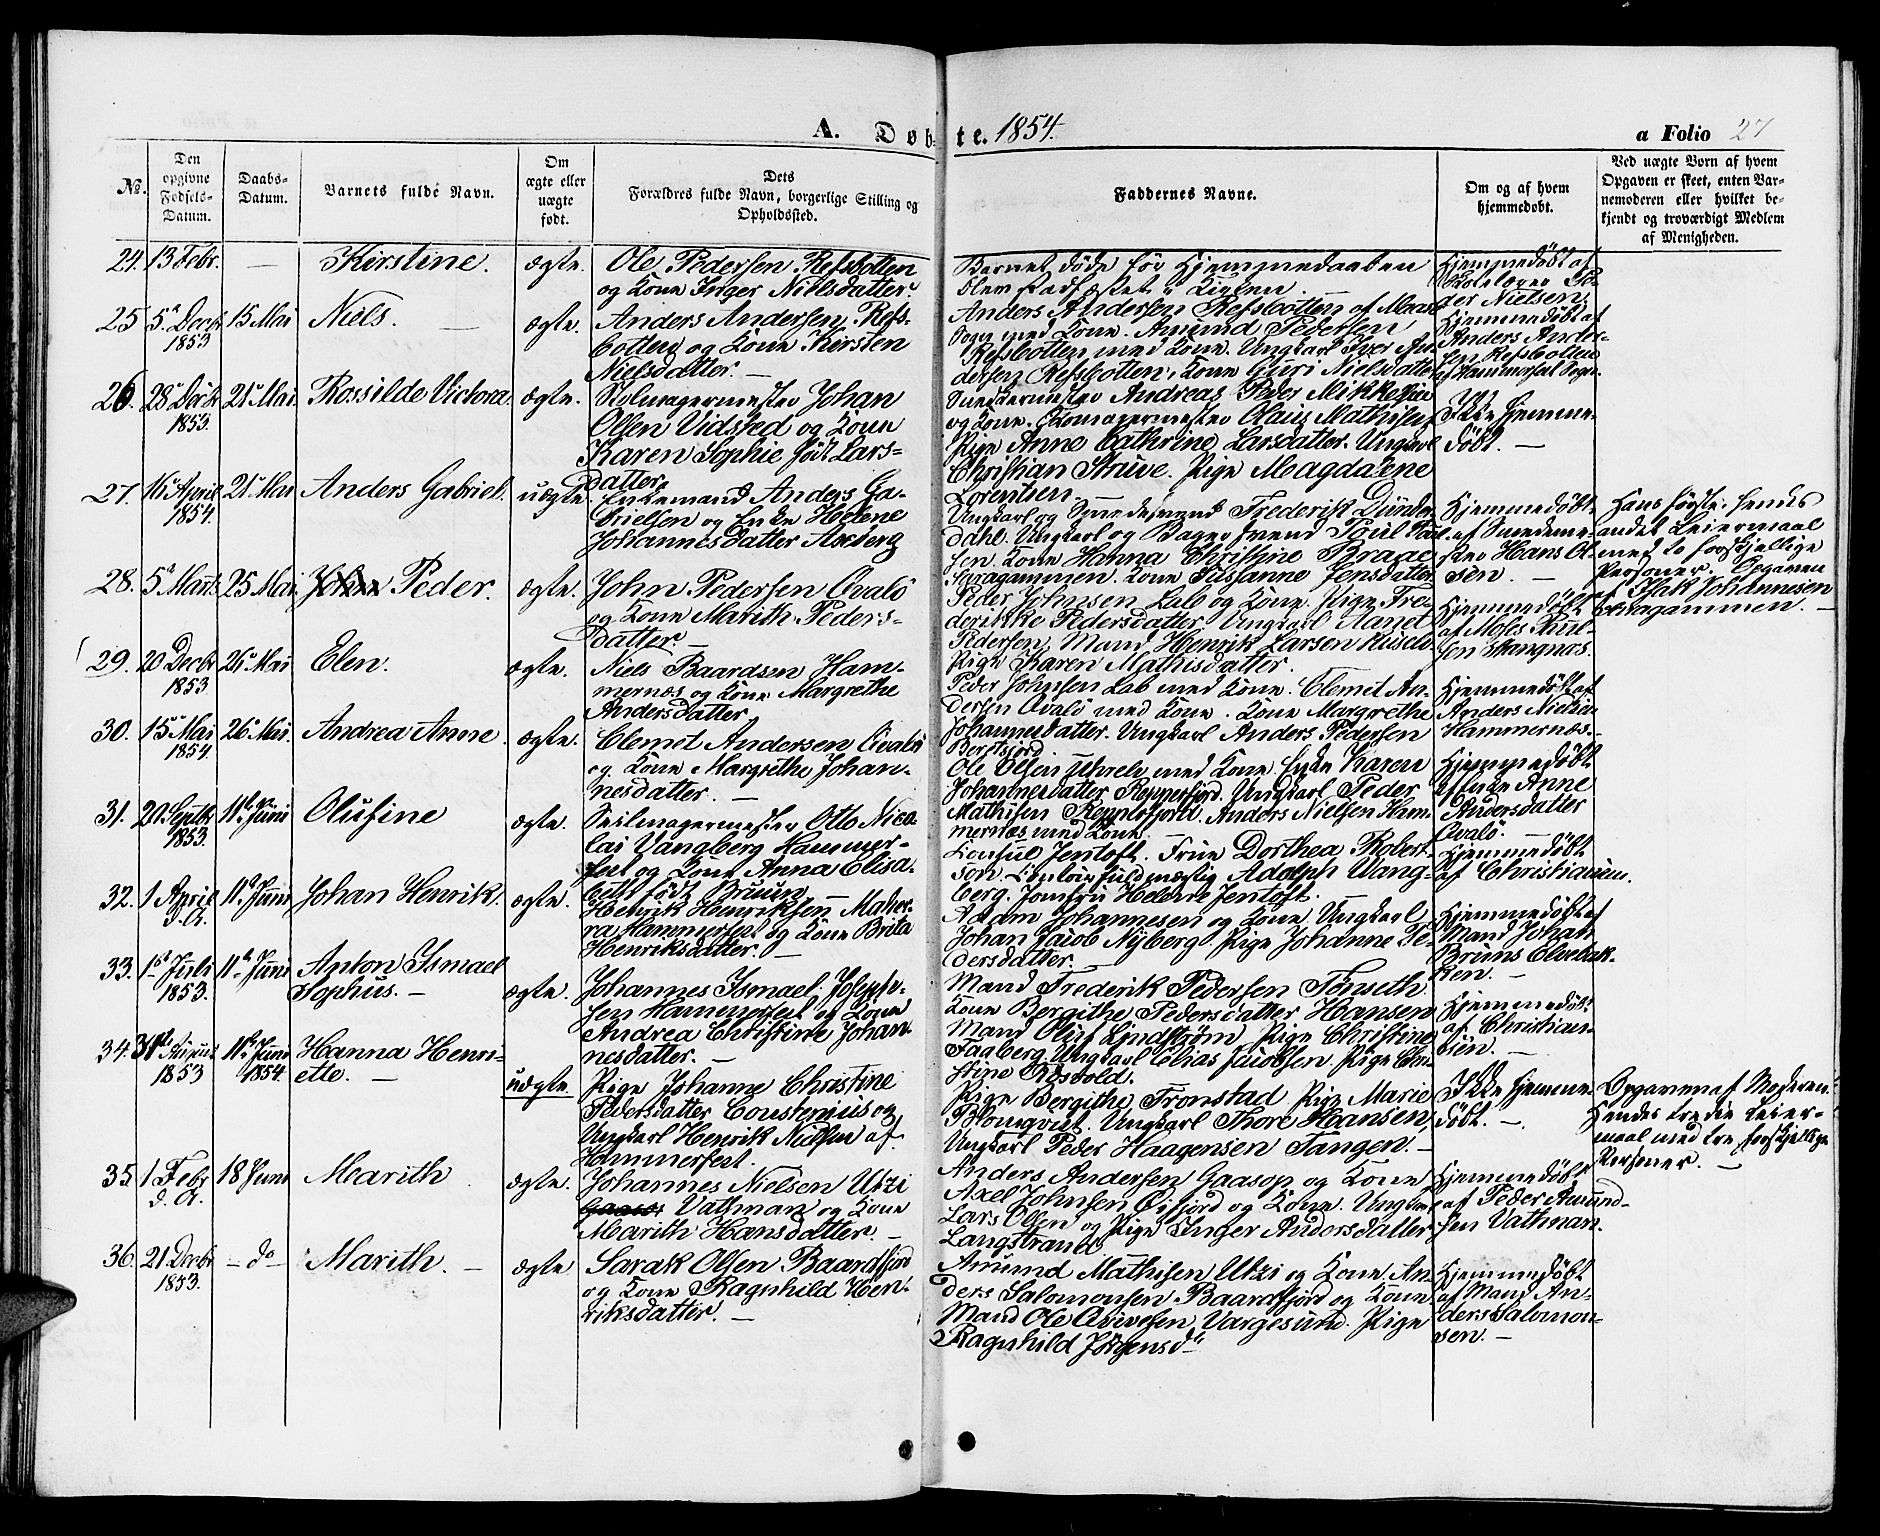 A. Døb-
te. 1854.
a Folio 27
No. Den opgivne Fødsels-Datum. Daabs-Datum. Barnets fulde Navn. Om ægte eller uægte født. Dets Forældres fulde Navn, borgerlige Stilling og Opholdssted.
Faddernes Navne. Om og af hvem hjemmedøbt. Ved uægte Børn af hvem Opgaven er skeet, enten Barnemoderen eller hvilket bekjendt og troværdigt Medlem af Menigheden.
24. 13 Febr. — Kirstine. ægte. Ole Pedersen Refsbotten
og Kone Inger Nielsdatter.
Barnet døde før Hjemmedaaben
blev stadfæstet i Kirken.
Hjemmedøbt af
Skolelærer Pe-
der Nielsen.
25 5te Decbr 1853 15 Mai Niels. — ægte. Anders Andersen Refs-
botten og Kone Kirsten
Nielsdatter. —
Anders Andersen Refsbotten af Maasø
Sogn med Kone. Amund Pedersen
Refsbotten med Kone. Ungkarl Iver An-
dersen Refsbotten, Kone Guri Nielsdatter
Hjemmedøbt af
Anders Ander-
sen Refsbotten
af Hammerfest Sogn.
26. 28de Decbr 1853. 21de Mai. Rossilde Victoria. ægte. Johan
Olsen Vidsted og Kone
Karen Sophie født Lars-
datter.
Snedkermester Andreas Peder Mikkelsen
og Kone. Claus Mathisen
Pige Anne Cathrine Larsdatter. Ungkarl
Christian Struve. Pige Magdalene
Lorentsen —
Ikke hjemme-
døbt. —
27. 16de April 1854. 21de Mai Anders Gabriel. uægte. Enkemand Anders Ga-
brielsen og Enke Helene
Johannesdatter Axeberg
Ungkarl og Smedesvend Frederik Dünder-
dahl. Ungkarl og Bagersvend Poul Paul-
sen. Kone Hanna Christine Braae
Saragammen. Kone Susanne Jensdatter
Hjemmedøbt
af Smedeme-
ster Hans Ol-
sen. —
Hans første, hendes
andet Leiermaal
med to forskjellige
Personer. Opgaven
af Isak Johannesen
Saragammen. —
28. 5te Marts 25 Mai Peder. ægte. John Pedersen Qvalø
og Kone Marith Peders-
datter. —
Peder Johnsen Lab og Kone. Pige Fre-
derikke Pedersdatter Ungkarl
Pedersen, Mand Henrik Larsen
Pige Karen Mathisdatter.
Hjemmedøbt
af Moses Poul-
sen Stangnæs.
29. 20 Decbr 1853 26de Mai Elen. ægte. Niels Baardsen Ham-
mernæs og Kone Margrethe
Andersdatter
Peder Johnsen Lab med Kone. Clemet An-
dersen Qvalø med Kone. Kone Margrethe
Johannesdatter. Ungkarl Anders Pedersen
Hjemmedøbt af
Anders Nielsen
Hammernæs. —
30. 15de Mai 1854. 26de Mai. Andrea Anne. ægte. Clemet Andersen Qvalø
og Kone Margrethe Johan-
nesdatter. —
Ole Olsen med Kone Enke Karen
Johannesdatter Repperfjord. Ungkarl Peder
Mathisen Repperfjord. Anders Nielsen Ham-
mernæs med Kone
Hjemmedøbt
af Enke Anne
Andersdatter
Qvalø. —
31. 20 Septbr 1853. 11te Juni Olufine ægte. Seilmagermester Otto Nico-
lai Vangberg Hammer-
fest og Kone Anna Elisa-
beth født Bruun —
Consul Jentoft. Frue Dorthea Robert-
son. Contoirfuldmægtig Adolph Wang-
berg. Jomfru Helene Jentoft.
Hjemmedøbt
af Christiansen.
32. 1 April d. A. 11te Juni Johan Henrik. ægte. Henrik Henriksen
Hammerfest og Kone Brita
Henriksdatter. —
Adam Johannesen og Kone. Ungkarl
Johan Jacob Nyberg. Pige Johanne Pe-
dersdatter. —
Hjemmedøbt af
Mand Johan
Bruns Elvebak-
ken. —
33. 1ste Juli 1853. 11te Juni Anton Ismael
Sophus. — ægte. Johannes Ismael Joseph-
sen Hammerfest og Kone
Andrea Christine Johan-
nesdatter. —
Mand Frederik Pedersen Tønseth
Kone Bergithe Pedersdatter Hansen
Mand Oluf Lyndstrøm Pige Christine
Faaberg Ungkarl Elias Jacobsen Pige Chri-
stine Rosvold.
Hjemmedøbt
af Christian-
sen. —
34. 31te August 1853 11te Juni 1854. Hanna Henri-
ette. — uægte Pige Johanne Christine
Pedersdatter Constenius og
Ungkarl Henrik Nielsen af
Hammerfest.
Pige Bergithe Tronstad Pige Marie
Blomqvist. Ungkarl Thore Hansen,
Ungkarl Peder Haagensen Tangen. —
Ikke hjemme-
døbt. —
Opgaven af Moderen.
Hendes tredie Leier-
maal med tre forskjellige
Personer. —
35 1 Febr d. A. 18 Juni Marith. ægte. Johannes Nielsen Utzi
Vathman og Kone
Marith Hansdatter. —
Anders Andersen Gaasop og Kone
Axel Johnsen Øifjord og Kone. Ungkarl
Lars Olsen og Pige Inger Andersdatter
Langstrand
Hjemmedøbt
af Peder Amund-
sen Vathman.
36. 21 Decbr 1853. — do — Marith. — ægte. Sarak Olsen Baardfjord
og Kone Ragnhild Hen-
riksdatter. —
Amund Mathisen Utzi og Kone. An-
ders Salomonsen Baardfjord og Kone
Mand Ole Vargesund. Pige
Ragnhild Jørgensdr
Hjemmedøbt
af Mand An-
ders Salomon-
sen. —